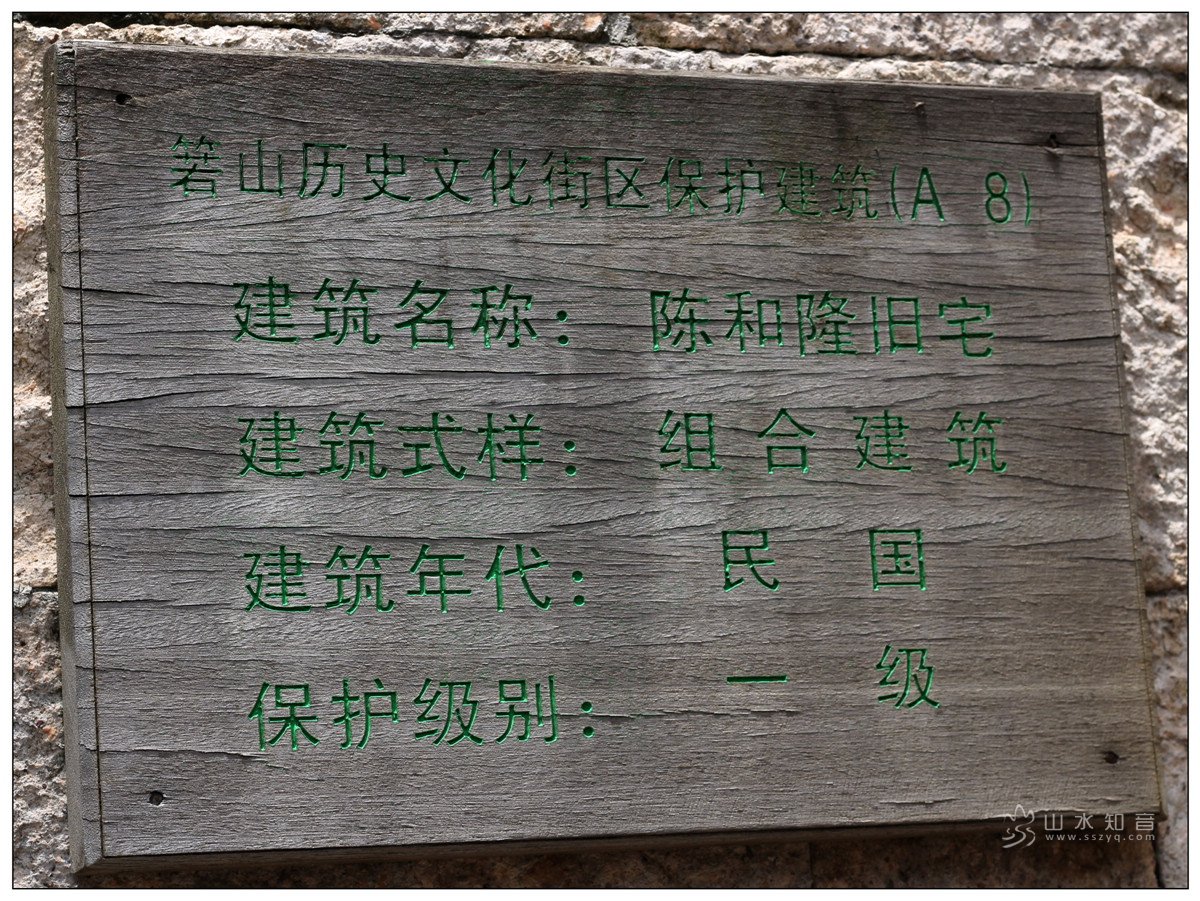 箬山历史文化街区保护建筑(A 8)
建筑名称： 陈和隆旧宅
建筑式样： 组合建筑
建筑年代： 民国
保护级别： 一级
山水知音
www.sszyq.com